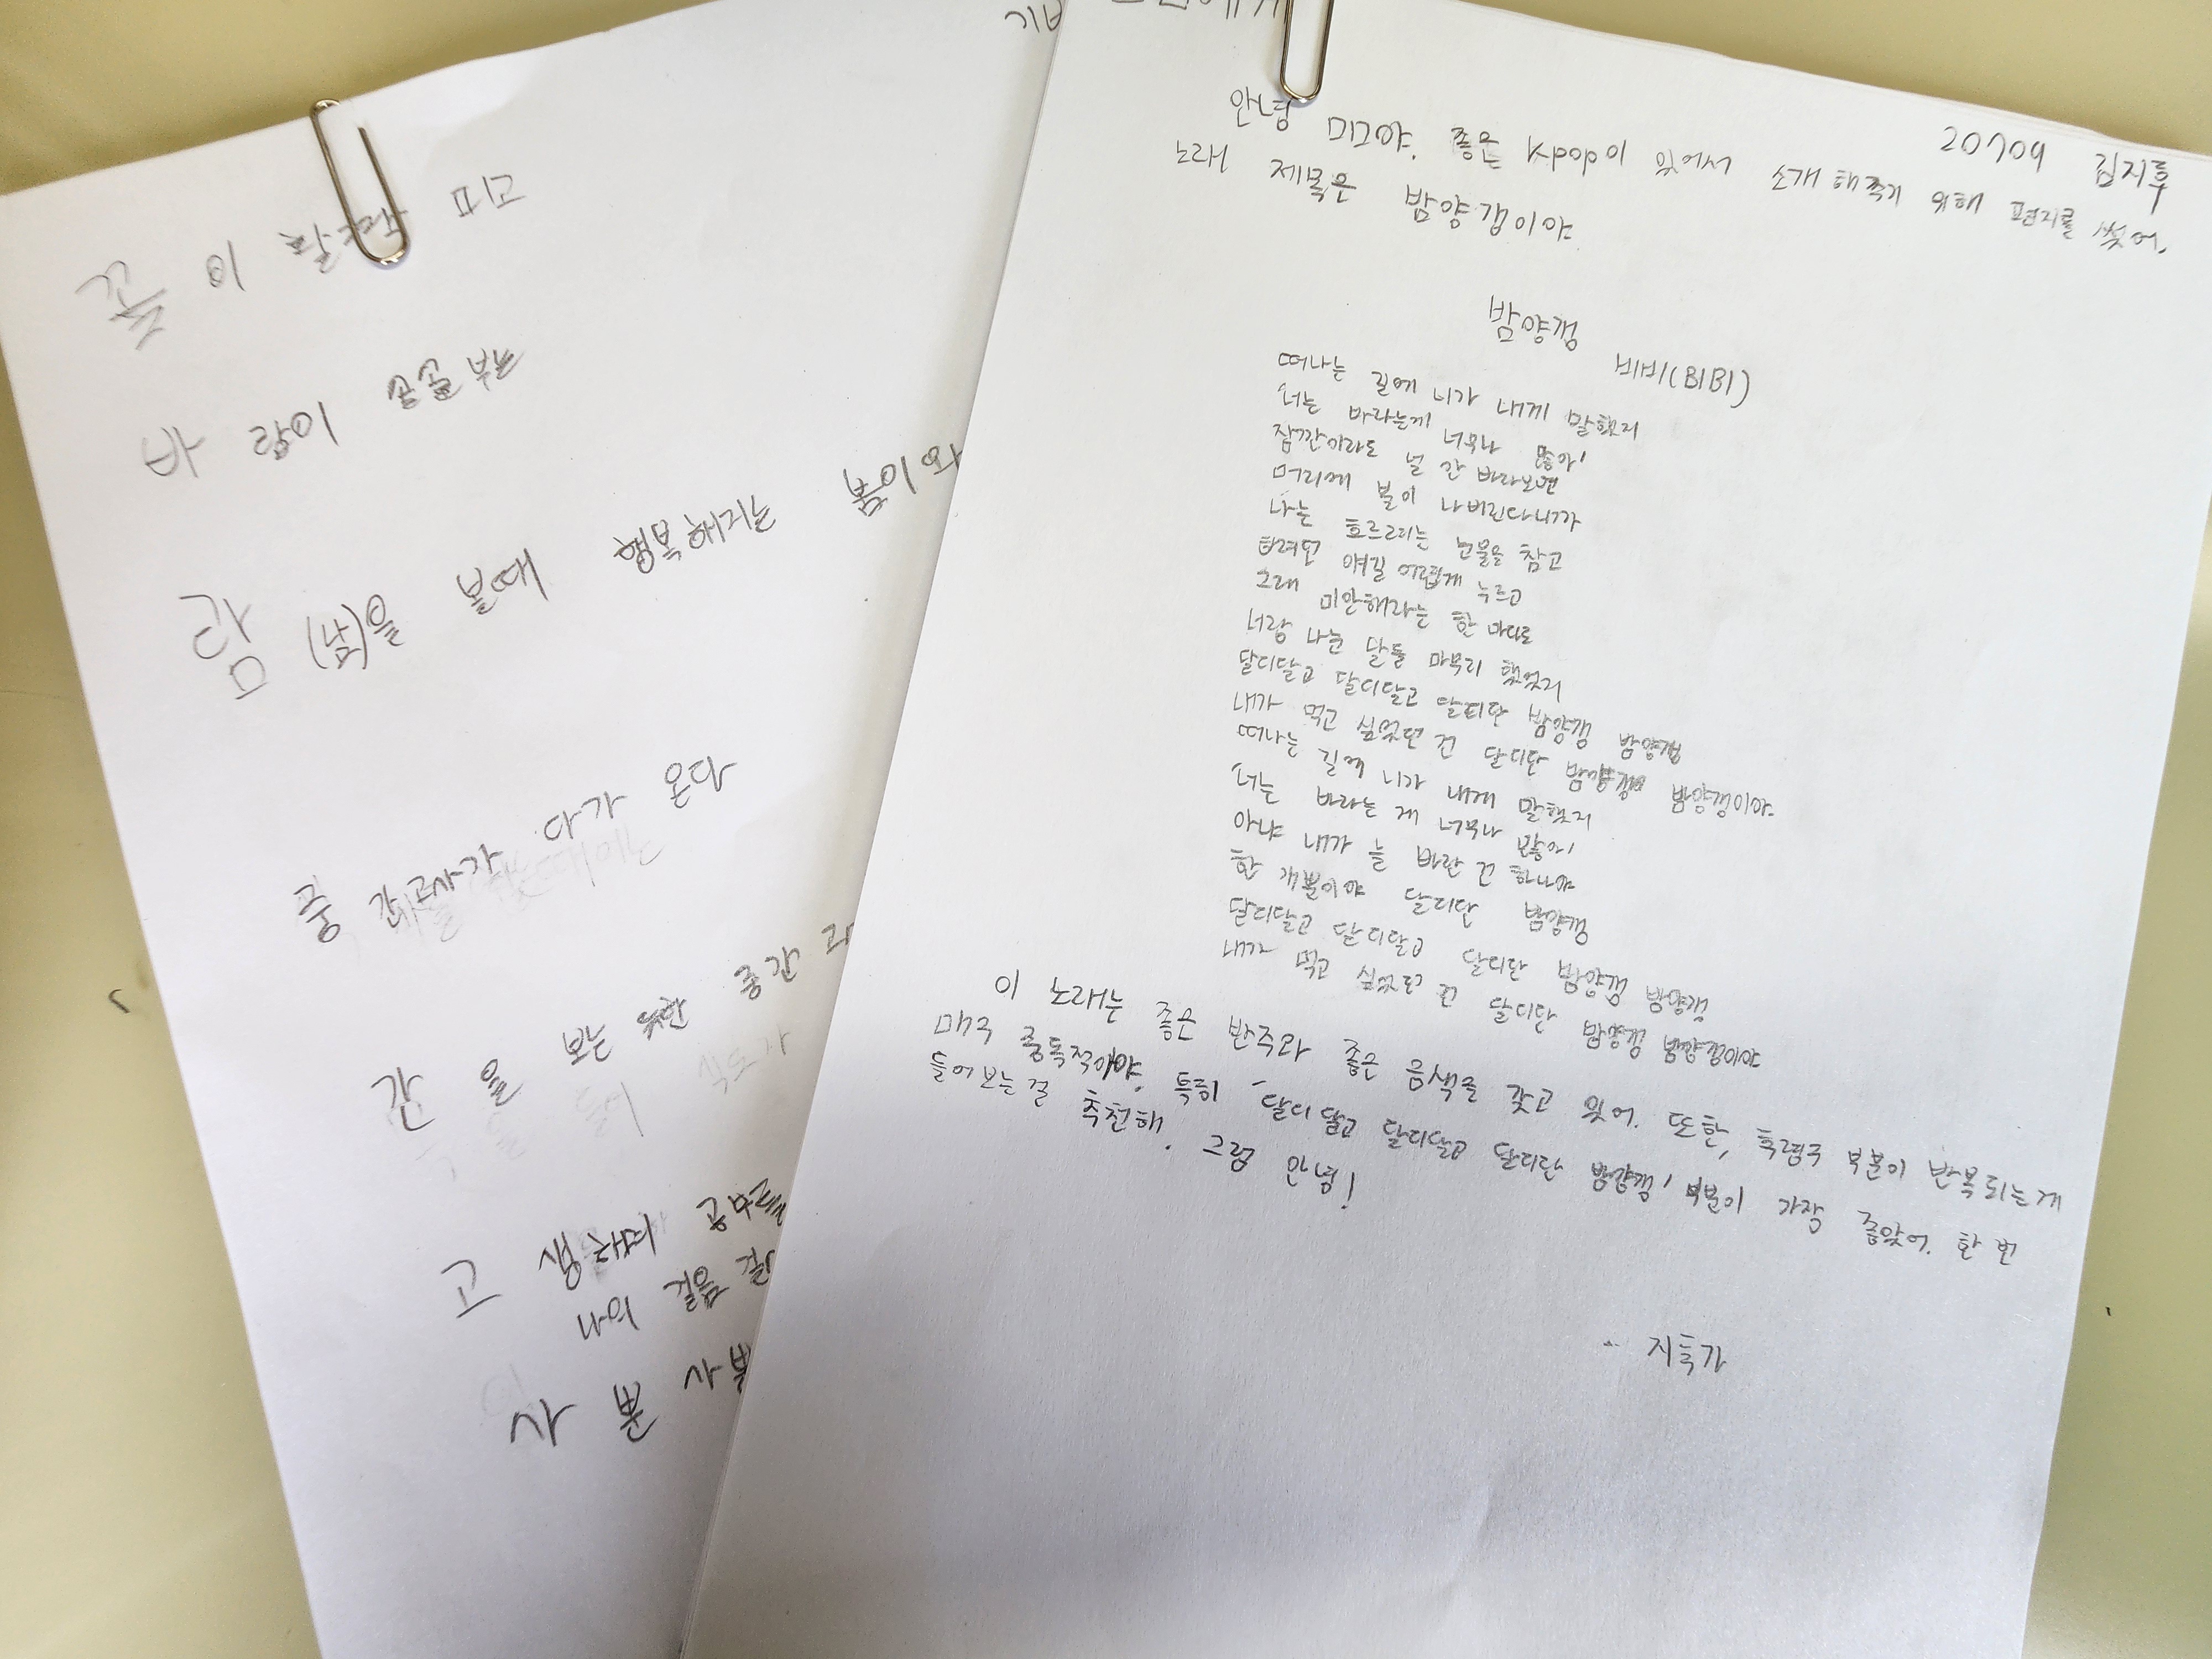 꽃이 활짝 피고
바 람이 솔솔 부르
람 (남)을 볼때 행복해지는 봄이 와
중 간고사가 다가 온다
간 을 보는 중간 고
고 생하며 공부를
내의 걸음 걸
사 뿐 사뿐
20709 김지후
안녕 미그야. 좋은 kpop이 있어서 소개 해주기 위해 편지를 썼어.
노래 제목은 밤양갱이야.
밤양갱
비비(BIBI)
떠나는 길에 니가 내게 말했지
너는 바라는게 너무나 많아'
잠깐이라도 널 안 바라보면
머리에 불이 나버린다니까
나는 흐르려는 눈물을 참고
하려던 얘길 어렵게 누르고
그래 미안해라는 한 마디로
너랑 나눈 날들 마무리 했었지
달디달고 달디달고 달디단 밤양갱 밤양갱
내가 먹고 싶었던 건 달디단 밤양갱 밤양갱이야.
떠나는 길에 니가 내게 말했지
너는 바라는 게 너무나 많아'
아냐 내가 늘 바란 건 하나야
한 개뿐이야 달디단 밤양갱
달디달고 달디달고 달디단 밤양갱 밤양갱
내가 먹고 싶었던 건 달디단 밤양갱 밤양갱이야
이 노래는 좋은 반주와 좋은 음색을 갖고 있어. 또한, 후렴구 부분이 반복되는게
매우 중독적이야. 특히 '달디달고 달디달고 달디단 밤양갱' 부분이 가장 좋았어. 한 번
들어보는 걸 추천해. 그럼 안녕!
- 지후가